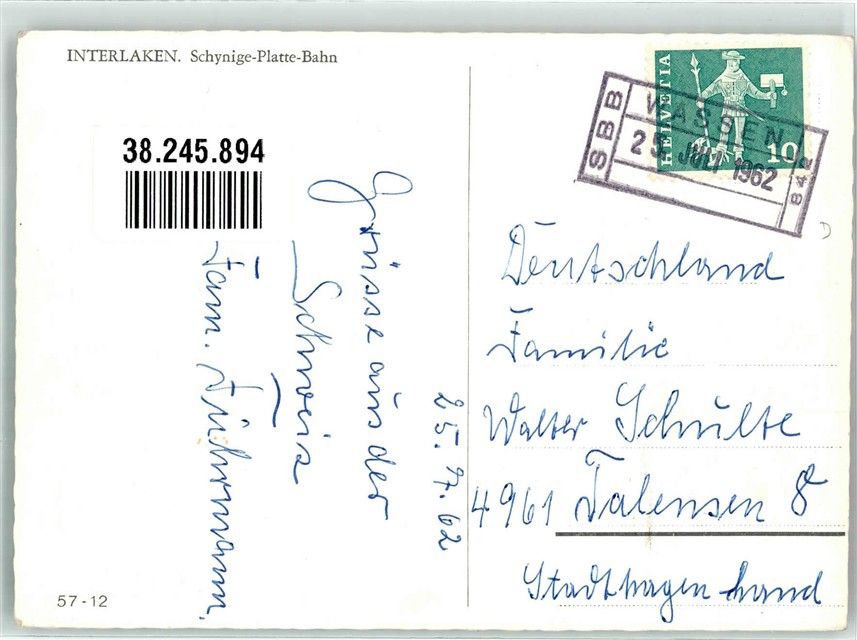 INTERLAKEN. Schynige-Platte-Bahn
38.245.894
HELVETIA
10
SBB
WASSEN
25 JULI 1962
Grüsse aus der
Schweiz
Fam. Führmann.
25. 7. 62
Deutschland
Familie
Walter Schulte
4961 Talensen 8
Stadthagen Land
57-12
D